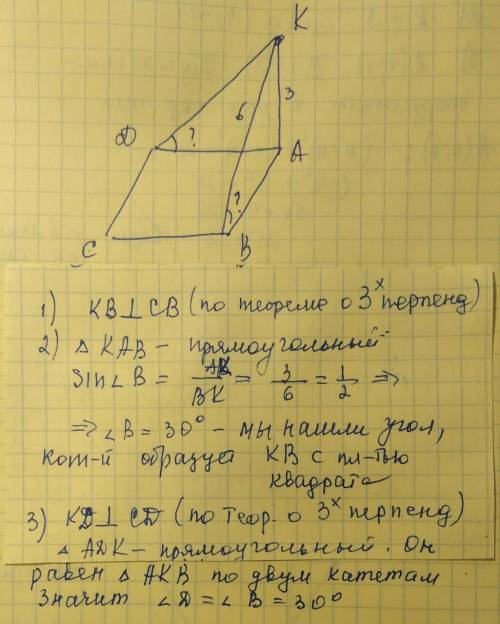 K
6
3
D
?
A
?
C
B
1) KB⊥CB (по теореме о 3ˣ перпенд)
2) △ KAB – прямоугольный
Sin∠B = AK/BK = 3/6 = 1/2 ⇒
⇒ ∠B = 30° – мы нашли угол,
кот-й образует KB с пл-тью
квадрата
3) KD⊥CD (по теор. о 3ˣ перпенд)
△ ADK – прямоугольный. Он
равен △ AKB по двум катетам
Значит ∠D = ∠B = 30°